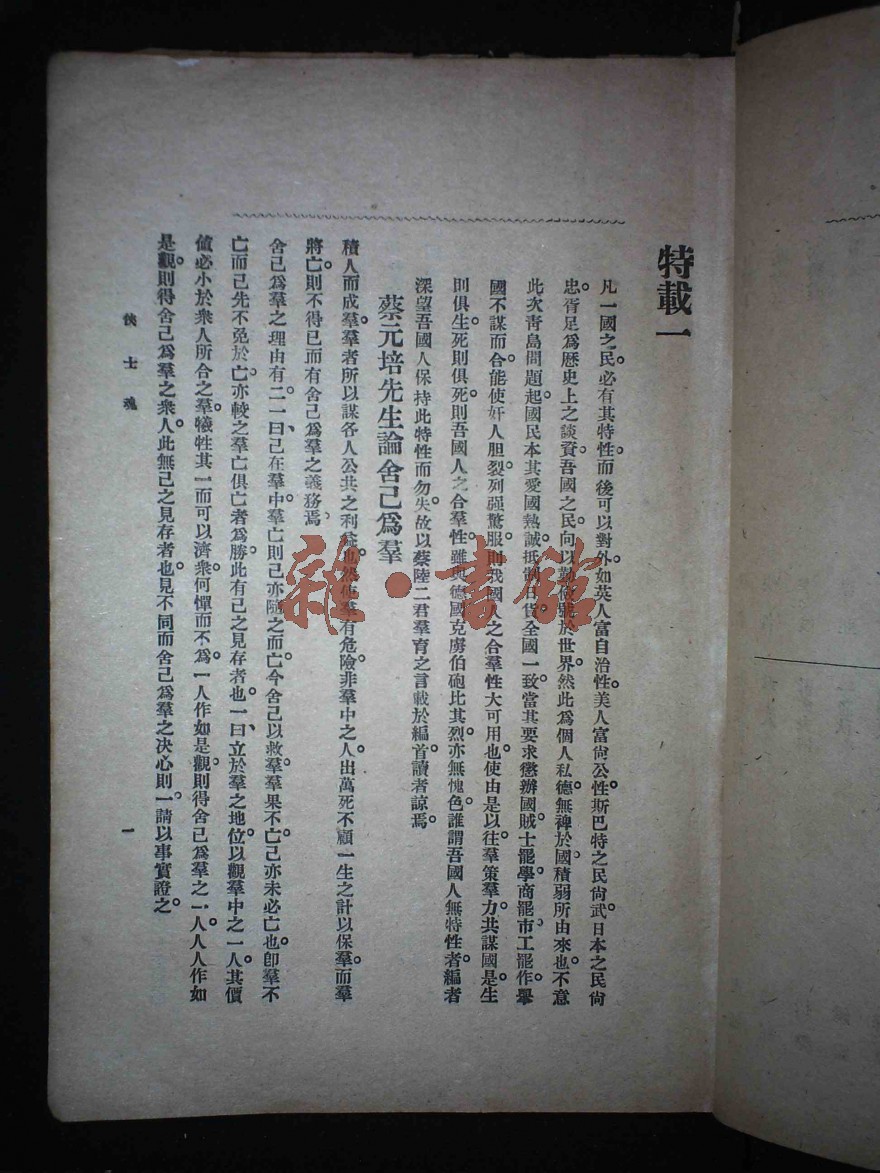 特載一
凡一國之民。必有其特性。而後可以對外。如英人富自治性。美人富尙公性。斯巴特之民尙武。日本之民尙
忠。胥足爲歷史上之談資。吾國之民。向以勤儉號於世界。然此爲個人私德。無裨於國。積弱所由來也。不意
此次靑島問題起。國民本其愛國熱誠。抵制日貨。全國一致。當其要求懲辦國賊。士罷學。商罷市。工罷作。舉
國不謀而合。能使奸人胆裂。列强驚服。則我國人之合羣性大可用也。使由是以往。羣策羣力。共謀國是。生
則俱生。死則俱死。則吾國人之合羣性。雖與德國克虜伯砲比其烈。亦無愧色。誰謂吾國人無特性者。編者
深望吾國人保持此特性而勿失。故以蔡陸二君羣育之言載於編首。讀者諒焉。
蔡元培先生論舍己爲羣
積人而成羣。羣者所以謀各人公共之利益也。然使羣有危險。非羣中之人出萬死不顧一生之計以保羣。而羣
將亡。則不得已而有舍己爲羣之義務焉。
舍己爲羣之理由有二。一曰、己在羣中。羣亡則己亦隨之而亡。今舍己以救羣。羣果不亡。己亦未必亡也。卽羣不
亡。而己先不免於亡。亦較之羣亡俱亡者爲勝。此有己之見存者也。一曰、立於羣之地位。以觀羣中之一人。其價
値必小於衆人所合之羣。犧牲其一而可以濟衆。何憚而不爲。一人作如是觀。則得舍己爲羣之一人。人人作如
是觀。則得舍己爲羣之衆人。此無己之見存者也。見不同而舍己爲羣之決心則一。請以事實證之。
俠士魂
一
雜·書館